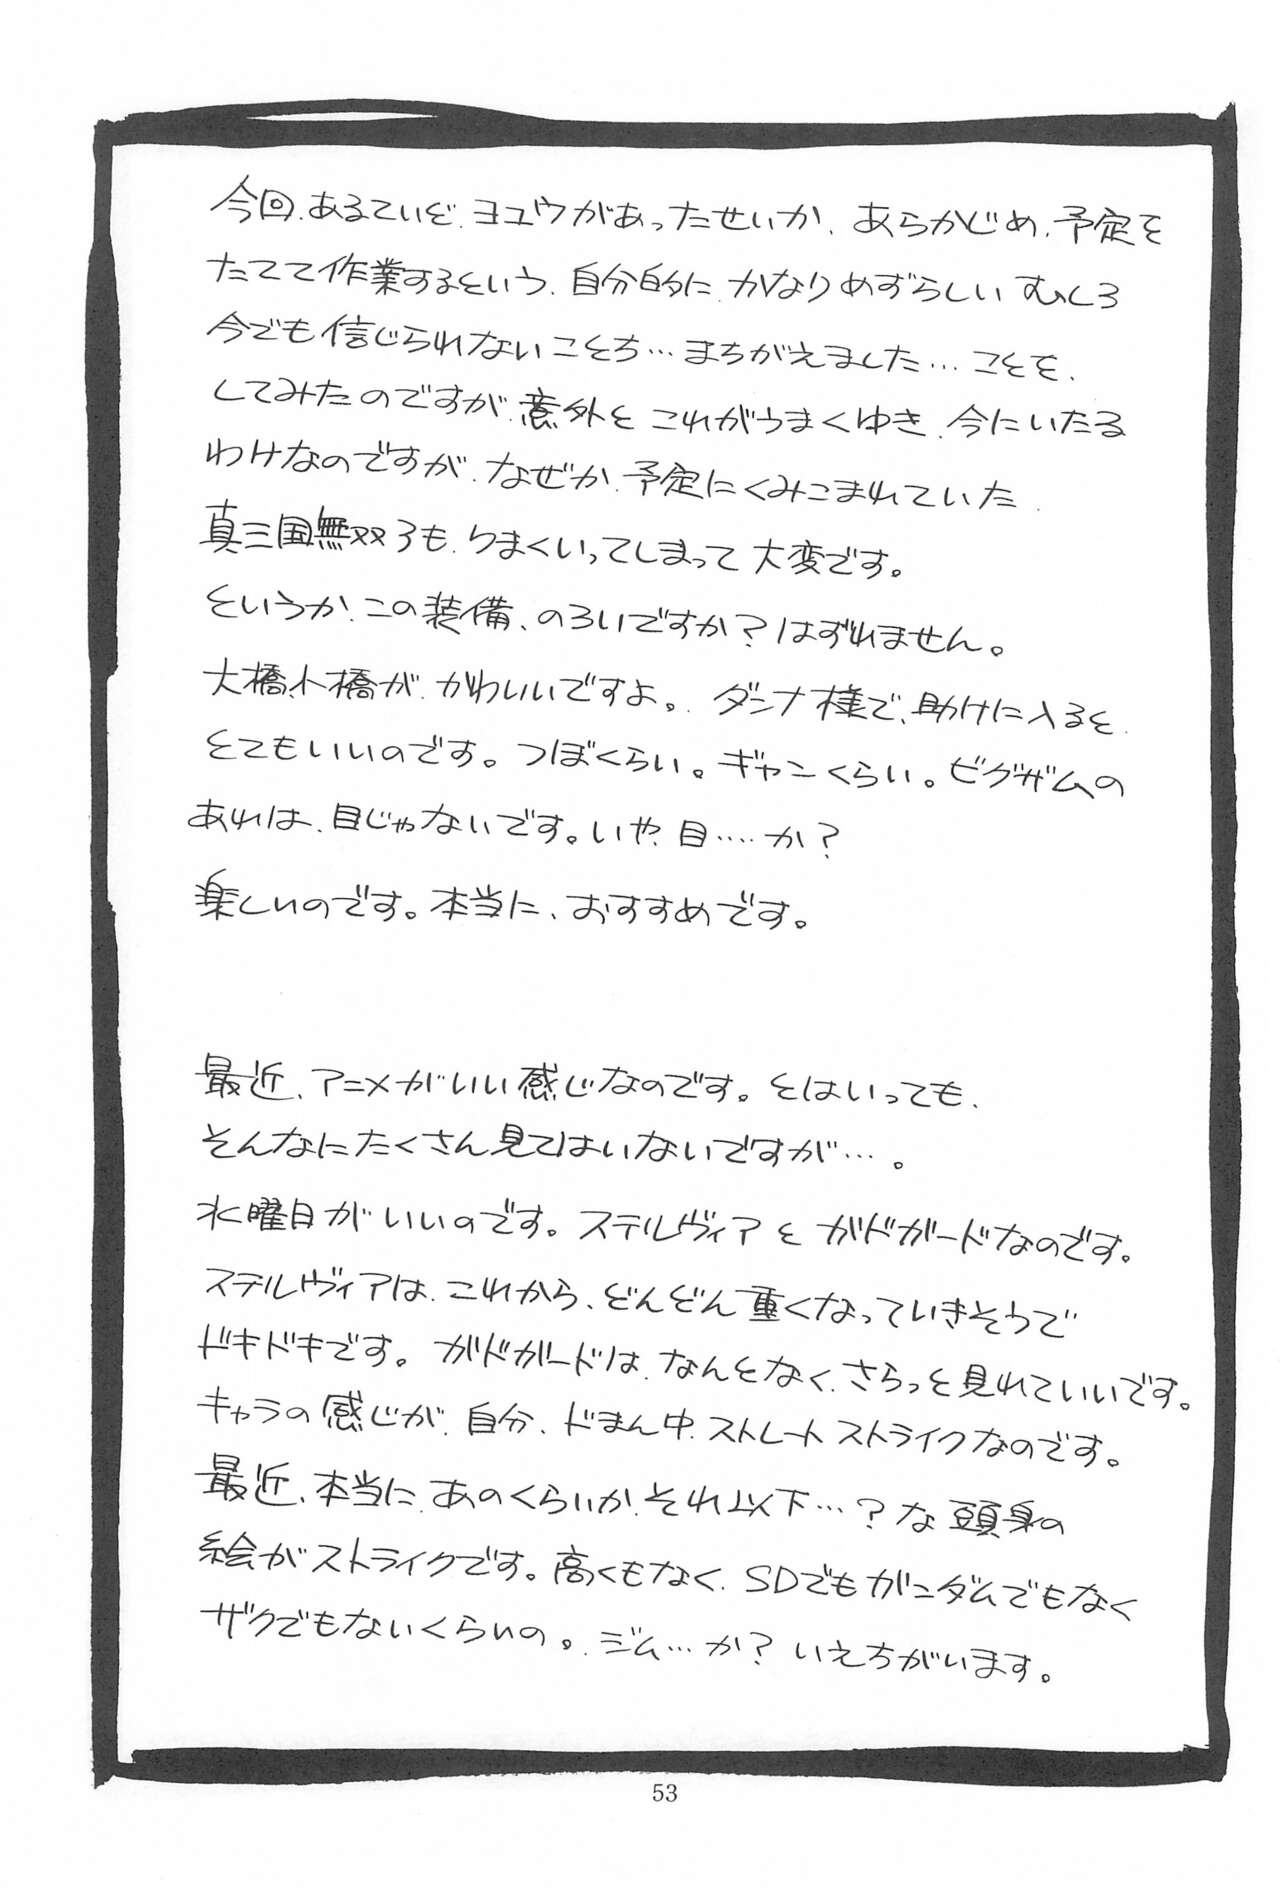 今回、あるていど、ヨユウがあったせいか、あらかじめ、予定を
たてて作業するという、自分的に、かなりめずらしい むしろ
今でも信じられないことち…まちがえました…ことを、
してみたのですが、意外と これがうまくゆき、今にいたる
わけなのですが、なぜか、予定にくみこまれていた、
真三国無双3も、うまくいってしまって大変です。
というか、この装備、のろいですか？はずれません。
大橋、小橋が、かわいいですよ。ダンナ様で、助けに入ると、
とてもいいのです。つぼくらい。ギャンくらい。ビグザムの
あれは、目じゃないです。いや、目‥‥か？
楽しいのです。本当に、おすすめです。
最近、アニメがいい感じなのです。とはいっても、
そんなにたくさん見てはいないですが…。
水曜日がいいのです。ステルヴィアと ガドガードなのです。
ステルヴィアは、これから、どんどん重くなっていきそうで
ドキドキです。ガドガードは、なんとなく、さらっと見れていいです。
キャラの感じが、自分、ドまん中、ストレート ストライクなのです。
最近、本当に、あのくらいか、それ以下…？な 頭身の
絵がストライクです。高くもなく、SDでもガンダムでもなく
ザクでもないくらいの。ジム…か？ いえちがいます。
53